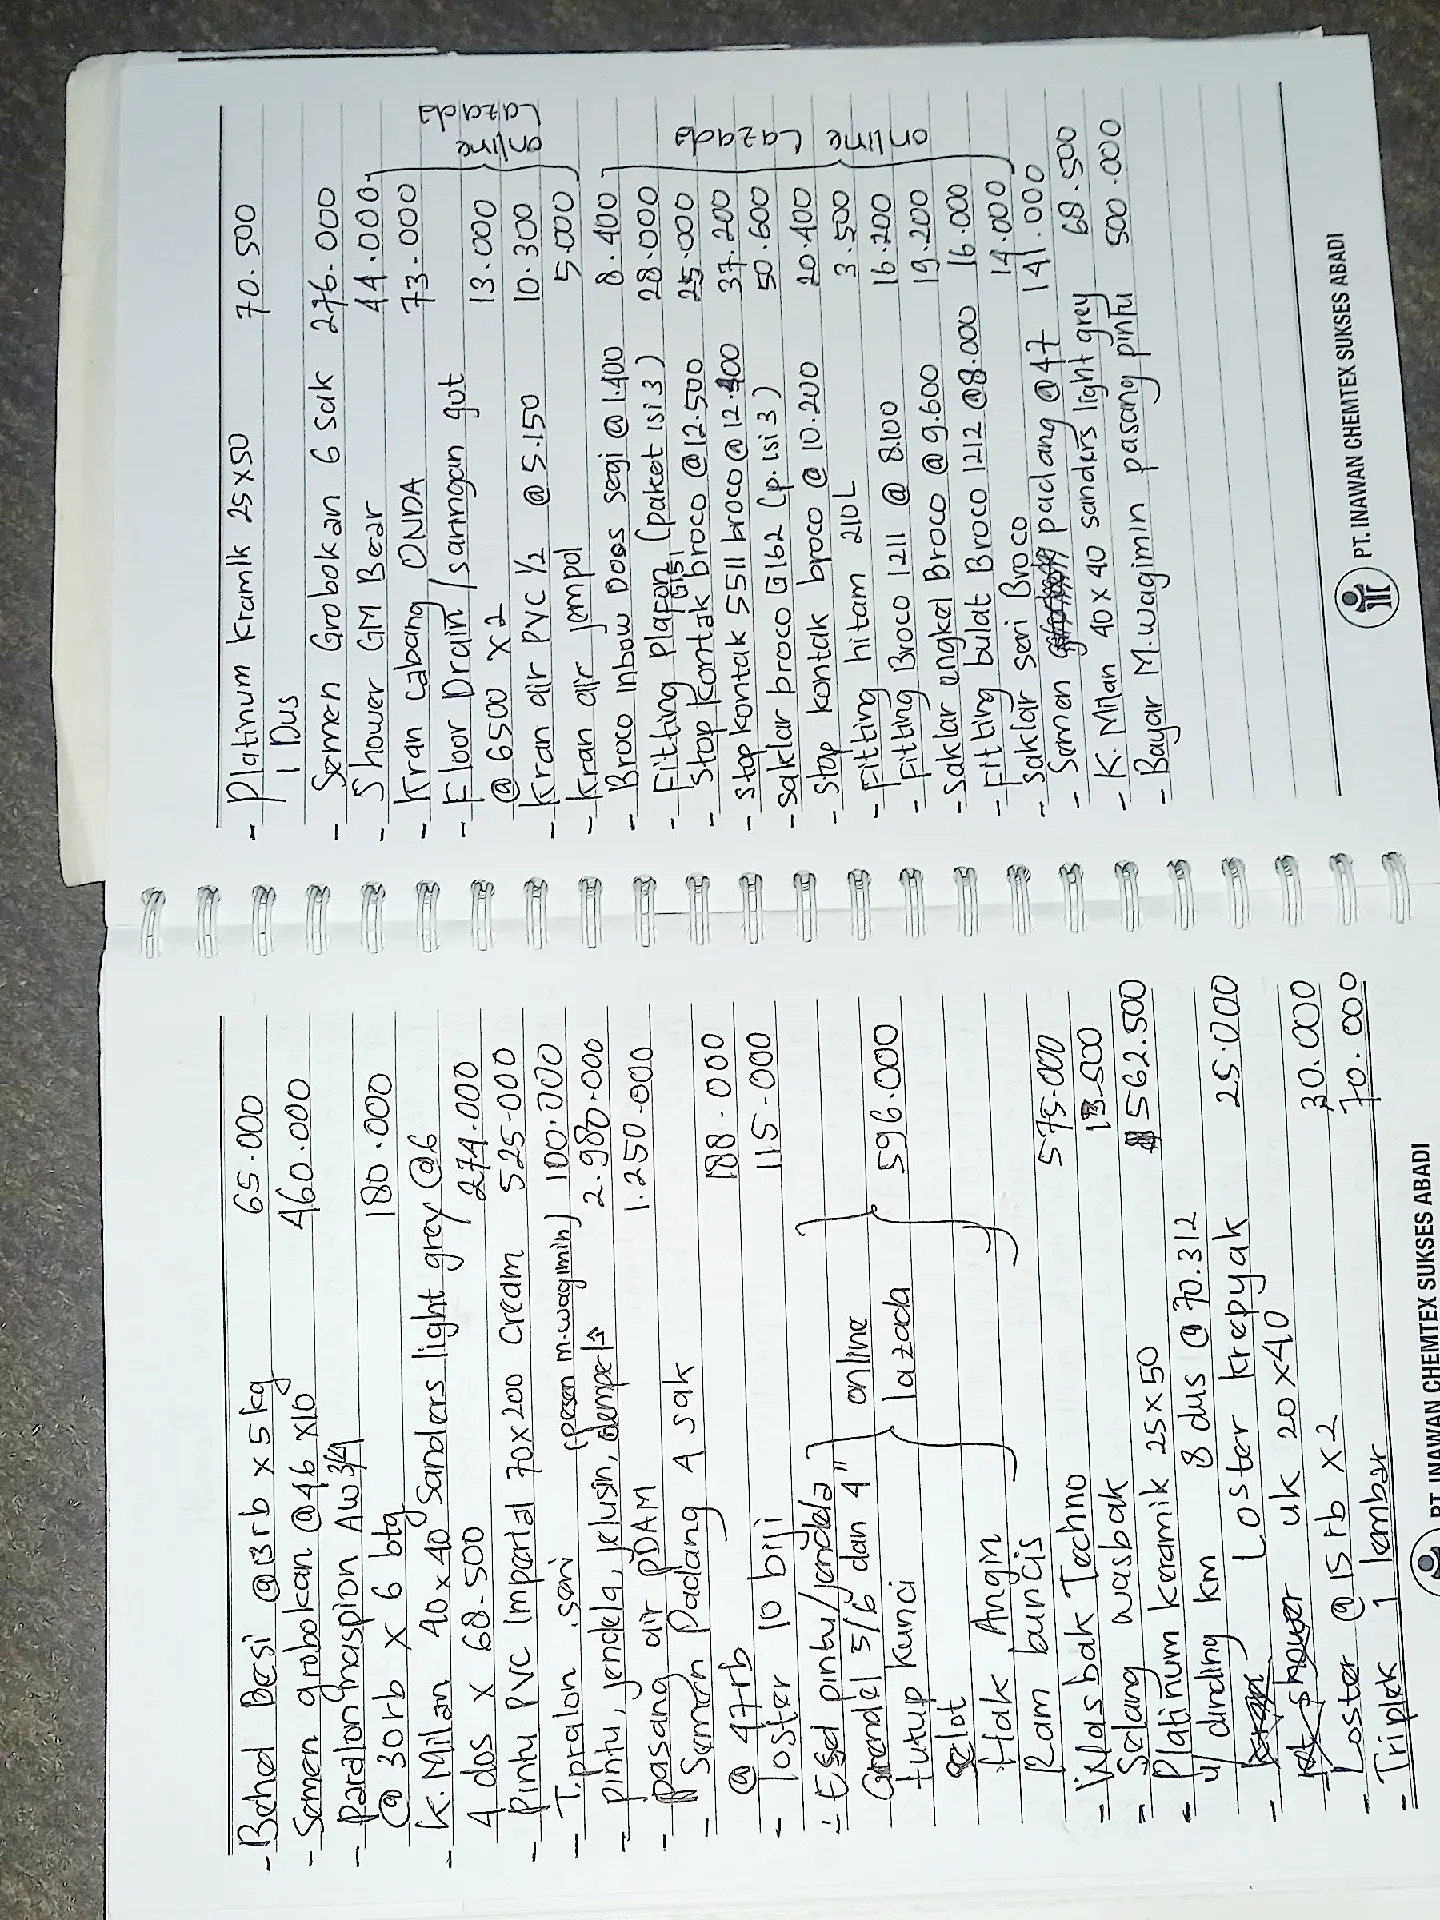 - Behel Besi @13rb x 5kg 65.000
- Semen grobokan @46 x10 460.000
- Paralon maspion AW 3/4
@ 30rb x 6 btg 180.000
- K. Milan 40x40 Sanders light grey @6
4 dos x 68.500 274.000
- Pintu PVC Imperial 70x200 cream 525.000
- T. pralon .seni (pesan m.wagimin) 100.000
- pintu, jendela, jelusin, dempel 2.980.000
- pasang air pDAM 1.250.000
- Semen Padang 4 sak
@ 47rb 188.000
- loster 10 biji 115.000
- Esel pintu/jendela
Grendel 5/6 dan 4" online
tutup kunci lazada 596.000
Selot
Hak Angin
Ram buncis
- Wasbak Techno 575.000
- Selang wasbak 13.500
- Platinum keramik 25x50 562.500
u/ dinding km 8 dus @ 70.312
- Loster krepyak 25.000
uk 20x40
- Loster @ 15 rb x 2 30.000
- Triplek 1 lembar 70.000
PT. INAWAN CHEMTEX SUKSES ABADI
- Platinum Kramik 25x50 70.500
1 Dus
- Semen Grobokan 6 sak 276.000
- Shower GM Bear 44.000
- Kran cabang ONDA 73.000
- Floor Drain / saringan gut
@ 6500 x 2 13.000
- Kran air PVC 1/2 @ 5.150 10.300
- Kran air jempol 5.000
online
Lazada
- Broco Inbow Doos segi @ 1.400 8.400
- Fitting plafon (paket isi 3) 28.000
- Stop kontak broco @ 12.500 25.000
- Stop kontak 5511 broco @ 12.400 37.200
- Saklar broco G162 (p. isi 3) 50.600
- Stop kontak broco @ 10.200 20.400
- Fitting hitam 210L 3.500
- Fitting Broco 1211 @ 8.100 16.200
- Saklar engkel Broco @ 9.600 19.200
- Fitting bulat Broco 1212 @8.000 16.000
- Saklar seri Broco 14.000
online Lazada
- Semen padang @ 47 141.000
- K. Milan 40x40 sanders light grey 68.500
- Bayar M. Wagimin pasang pintu 500.000
PT. INAWAN CHEMTEX SUKSES ABADI